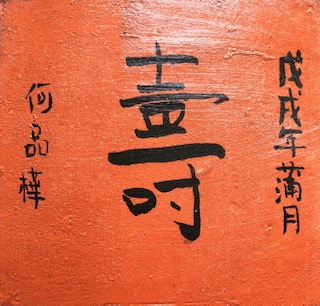 戊戌年蒲月
壽
何品樺